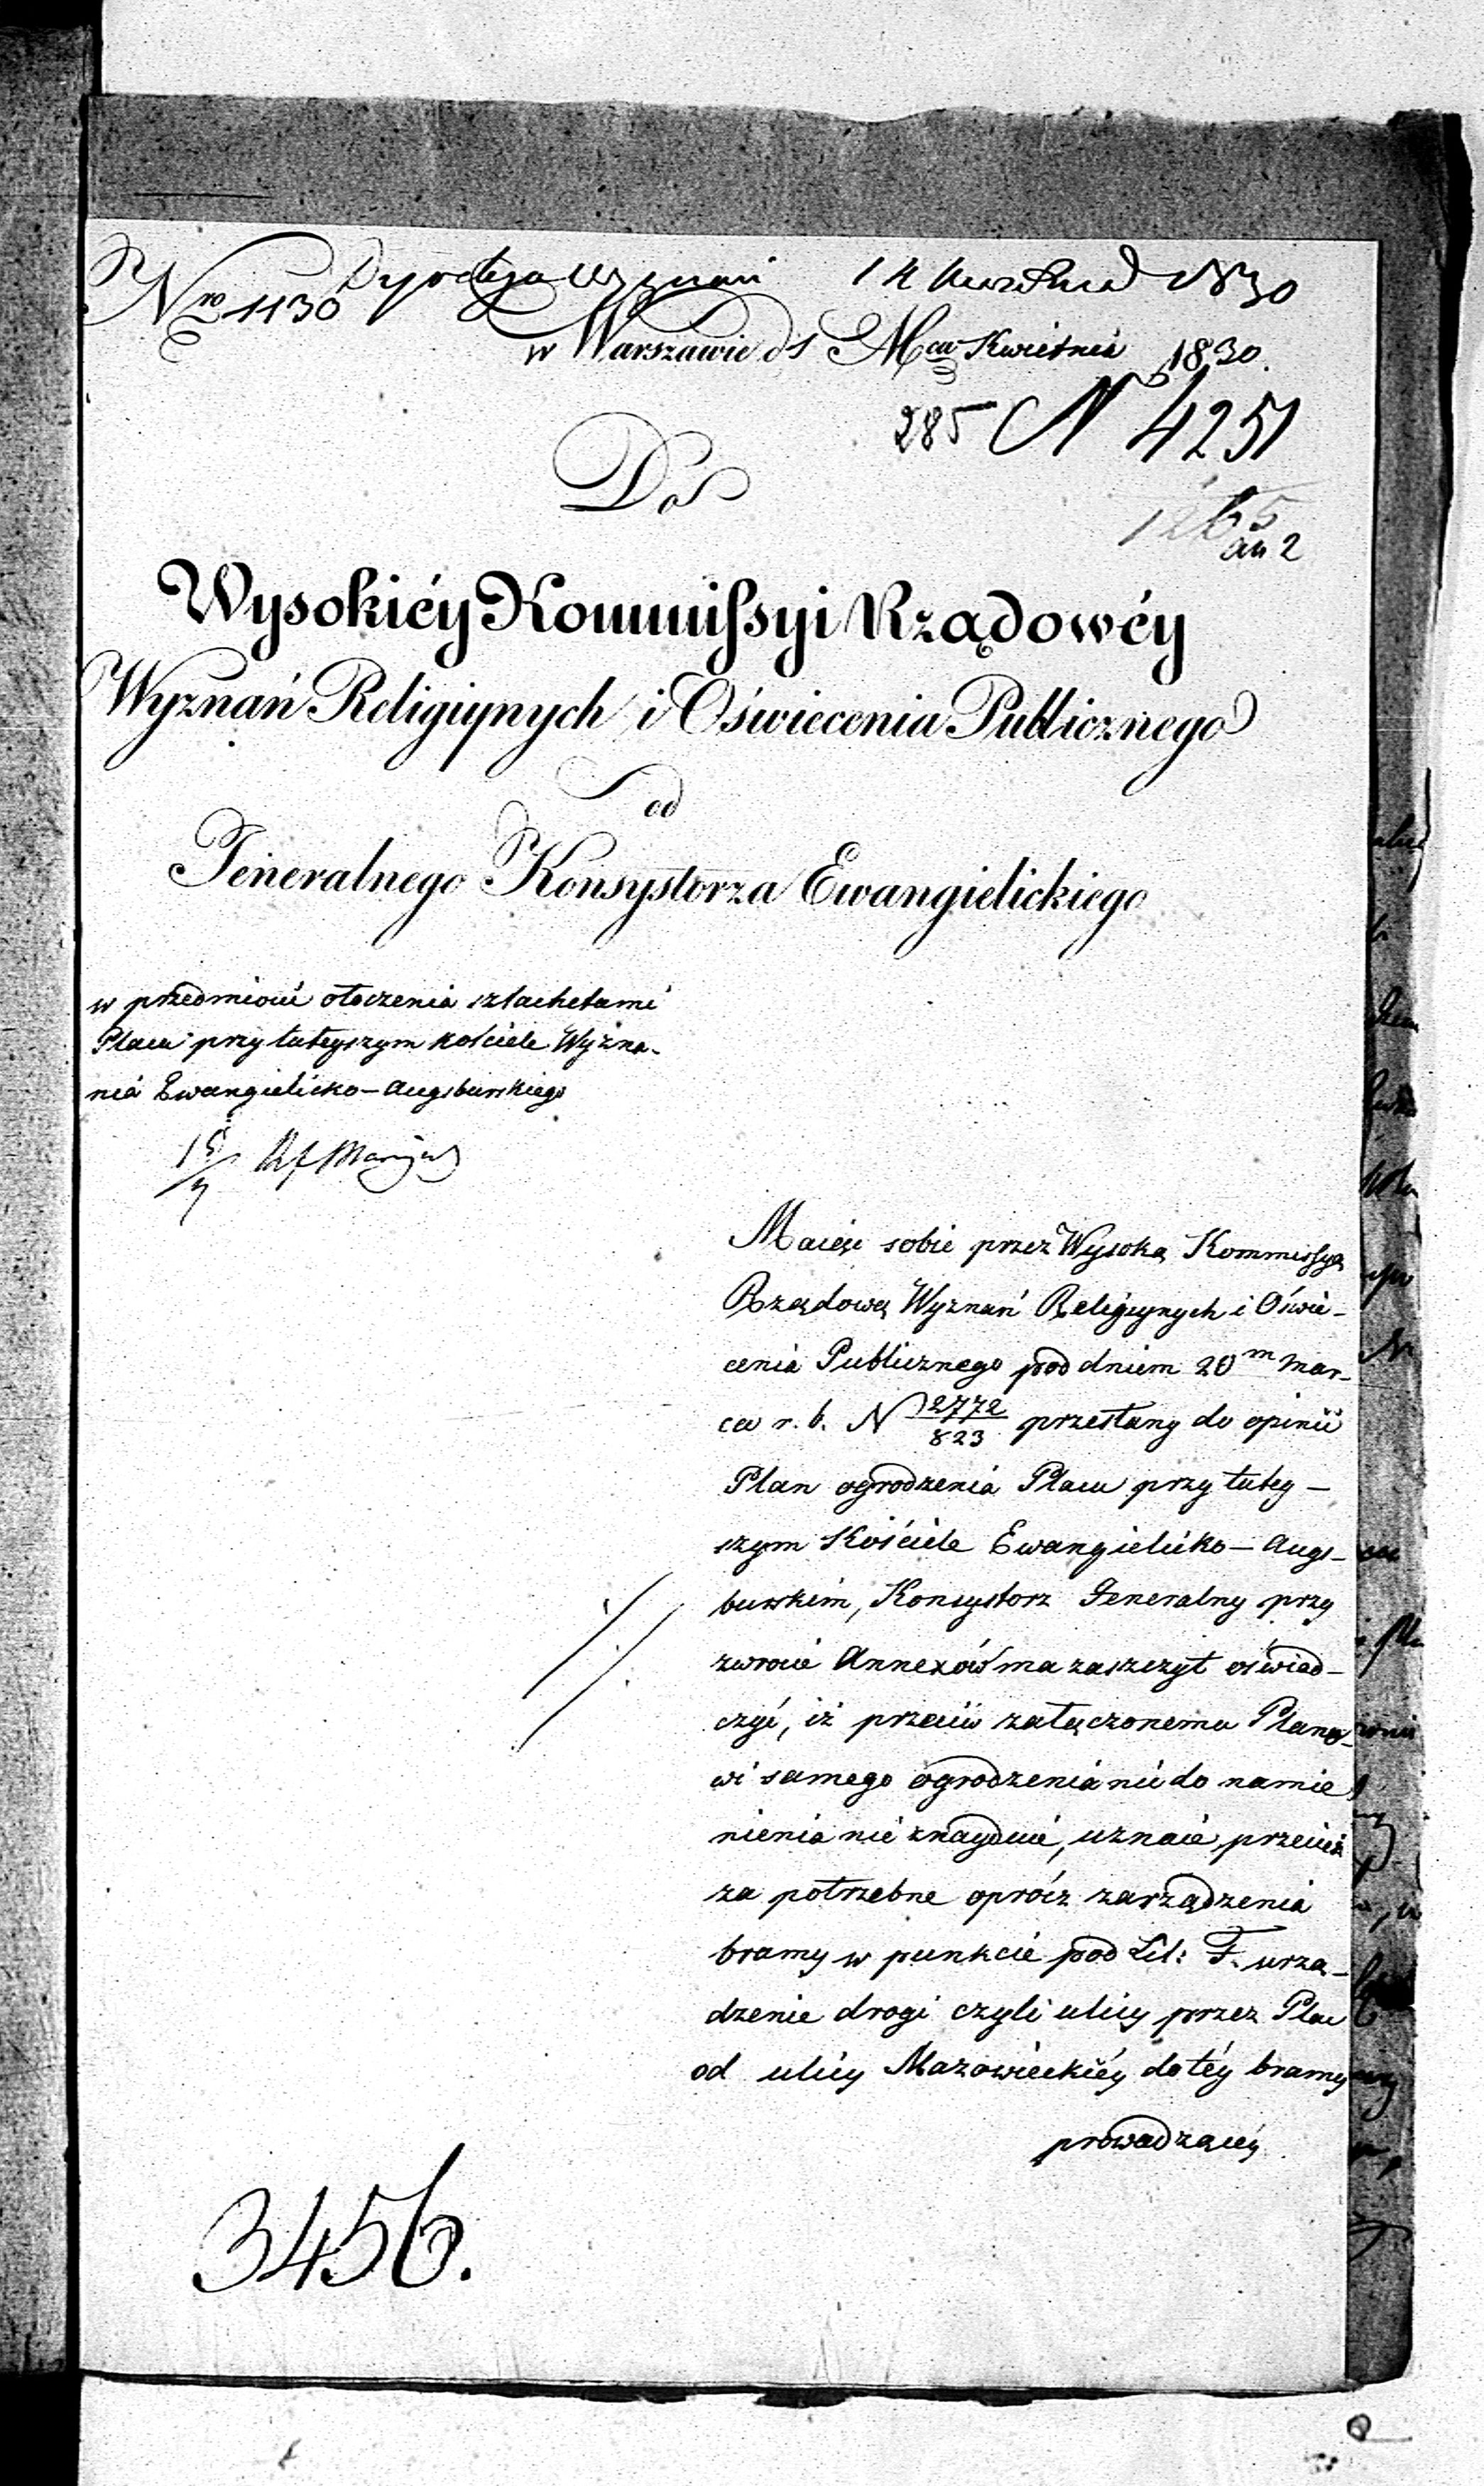 Nro 1130 Dyrekcya Wyznań 14 Kwietnia 1830
w Warszawie d 1 Mca Kwietnia 1830.
285 N 4251
1265
an 2
Do
Wysokiéy Kommissyi Rządowéy
Wyznań Religiynych i Oświecenia Publicznego
od
Jeneralnego Konsystorza Ewangielickiego
w przedmiocie otoczenia sztachetami
Placu przy tuteyszym kościele Wyzna-
nia Ewangielicko-Augsburskiego
15/4
Maiąc sobie przez Wysoką Kommissyą
Rządową Wyznań Religiynych i Oświe-
cenia Publicznego pod dniem 20m Mar-
ca r. b. N 2772/823 przesłany do opinii
Plan ogrodzenia Placu przy tutey-
szym Kościele Ewangielicko-Augs-
burskim, Konsystorz Jeneralny przy
zwrocie Annexów ma zaszczyt oświad-
czyć, iż przeciw załączonemu Plano-
wi samego ogrodzenia nic do namie
nienia nie znayduie, uznaie przecież
za potrzebne oprócz zarządzenia
bramy w punkcie pod Lit: F. urzą-
dzenie drogi czyli ulicy przez Plac
od ulicy Mazowieckiéy do téy bramy
prowadzącéy
3456.